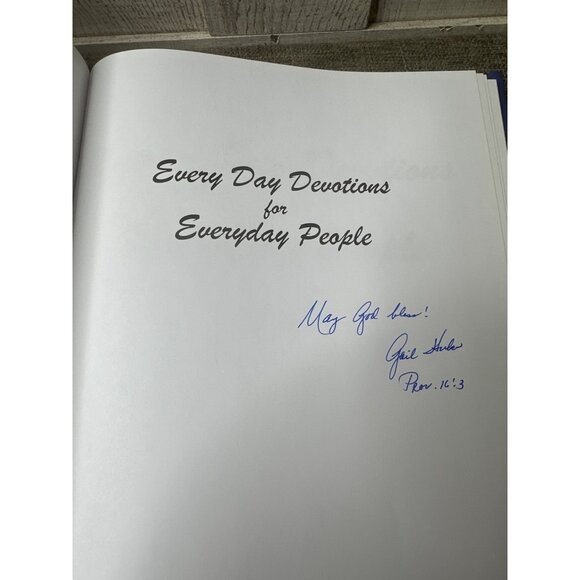 Every Day Devotions
for
Everyday People
May God bless!
Gail
Prov. 16:3